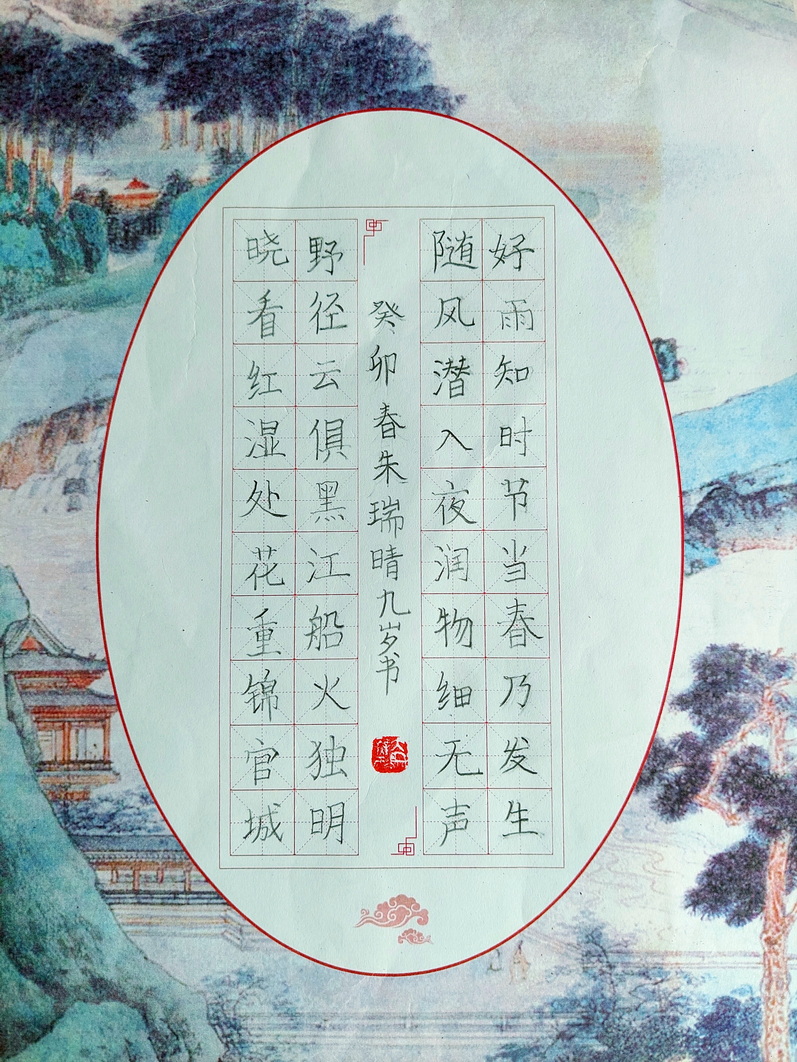 好雨知时节当春乃发生
随风潜入夜润物细无声
癸卯春朱瑞晴九岁书
野径云俱黑江船火独明
晓看红湿处花重锦官城